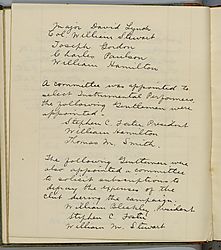 Major David Lynch
Col William Stewart
Joseph Gordon
Charles Paulson
William Hamilton
A committee was appointed to
select Instrumental Performers
the following Gentlemen were
appointed.
Stephen C. Foster President
William Hamilton
Thomas M. Smith.
The following Gentlemen were
also appointed a committee
to solicit subscriptions to
defray the expenses of the
club during the campaign.
William President
Stephen C. Foster
William M. Stewart